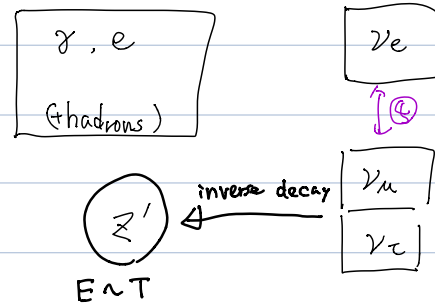 γ, e
(+hadrons)
νe
inverse decay
νμ
Z'
ντ
E~T